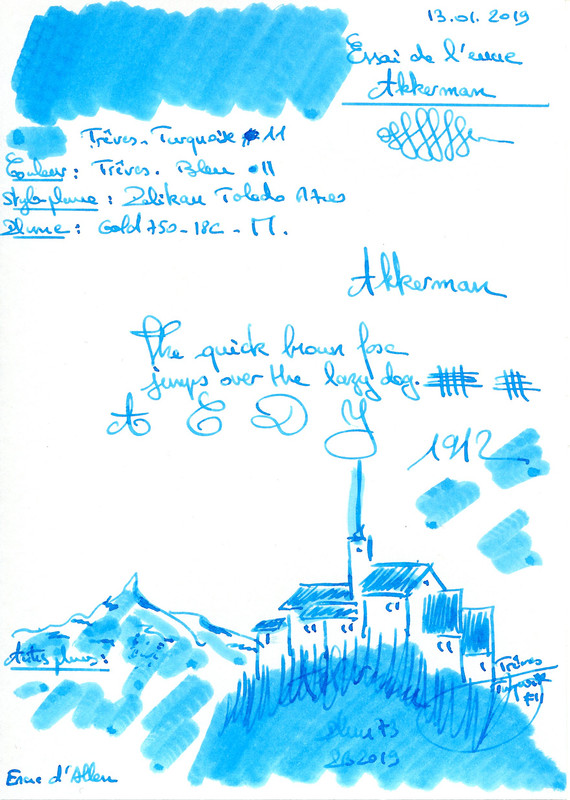 13.01.2019
Essai de l'encre
Akkerman
Trêves-Turquoise #11
Couleur: Trêves. Bleu #11
Stylo-plume: Pelikan Toledo
Plume: Gold 750-18C-M.
Akkerman
The quick brown fox
jumps over the lazy dog.
A E D Y
1912
Autres plumes:
Trêves
Turquoise
#11
2019
Encre d'Allen